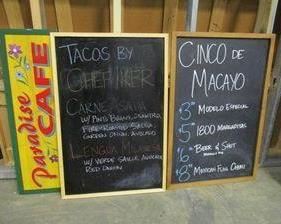 Paradise
CAFE
TACOS BY
CHEF IKER
CARNE ASADA
W/ PINTO BEANS, CILANTRO,
FIRE ROASTED SALSA
ONION, AVOCADO
LENGUA
W/ VERDE SALSA, AVOCADO
RED ONION
CINCO DE
MACAYO
$3 MODELO ESPECIAL
$5 1800 MARGARITAS
$6 BEER & SHOT
$8 MEXICAN